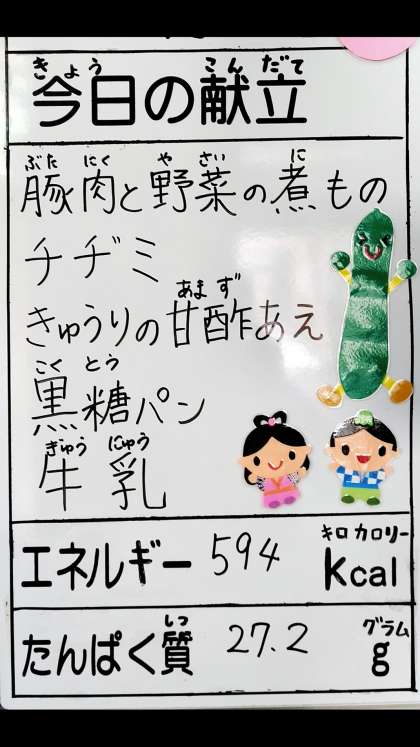 きょう こんだて
今日の献立
ぶた にく や さい に
豚肉と野菜の煮もの
チヂミ
あま ず
きゅうりの甘酢あえ
こく とう
黒糖パン
ぎゅう にゅう
牛乳
キロカロリー
エネルギー 594 kcal
しつ グラム
たんぱく質 27.2 g